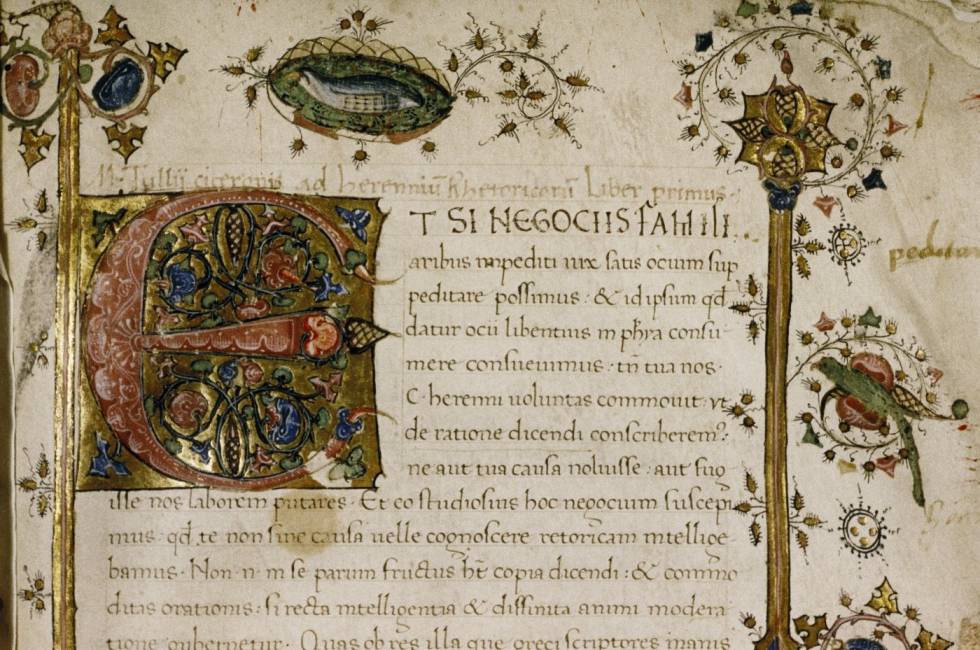 M. Tullii ciceronis ad herenniū Rhetoricorū Liber primus.
ET SI NEGOCIIS FAMILI
aribus impediti uix satis ocium sup
peditare possimus: & id ipsum qđ
datur ocii libentius in phīa consu
mere consueuimus: tn̄ tua nos.
C. herenni uoluntas commouit: vt
de ratione dicendi conscriberem?:
ne aut tua causa noluisse: aut fug
isse nos laborem putares. Et eo studiosius hoc negocium suscepi
mus. qđ te non sine causa uelle cognoscere retoricam intellige
bamus. Non n. in se parum fructus ht̄ copia dicendi: & commo
ditas orationis: si recta intelligentia & diffinita animi modera
tione gubernetur. Quas ob res illa que greci scriptores inanis